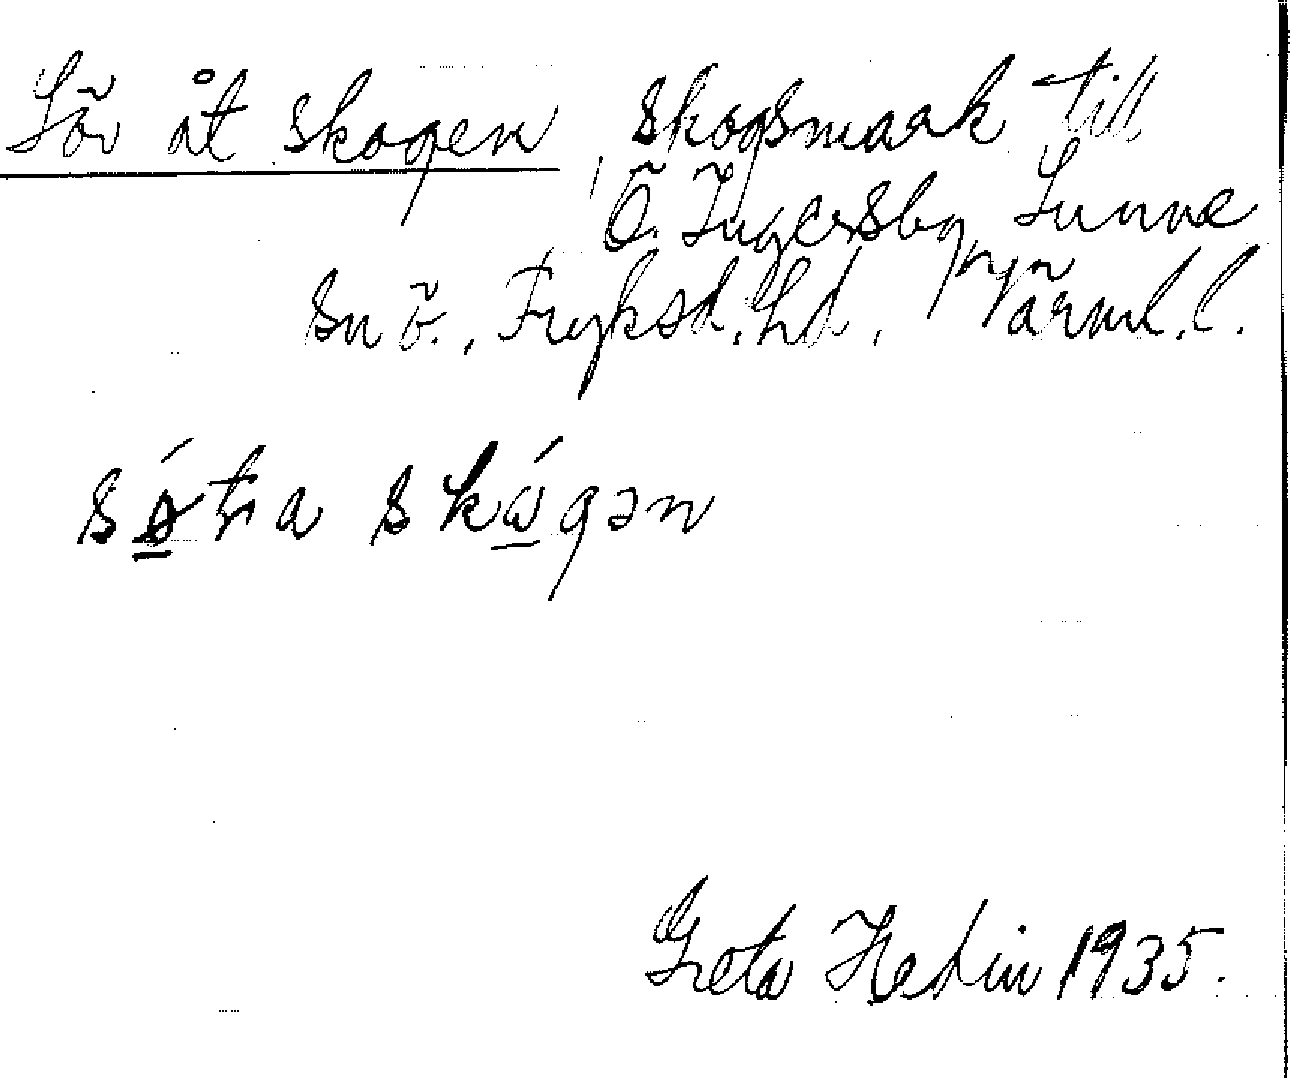 Sör åt skogen, skogsmark till
Ö. Ingersby, Sunne
sn ö., Fryksd. hd, Värml. l.
skógən
Greta Hedin 1935.